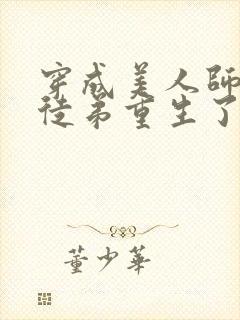 穿成美人師
徒弟重生了
董少華